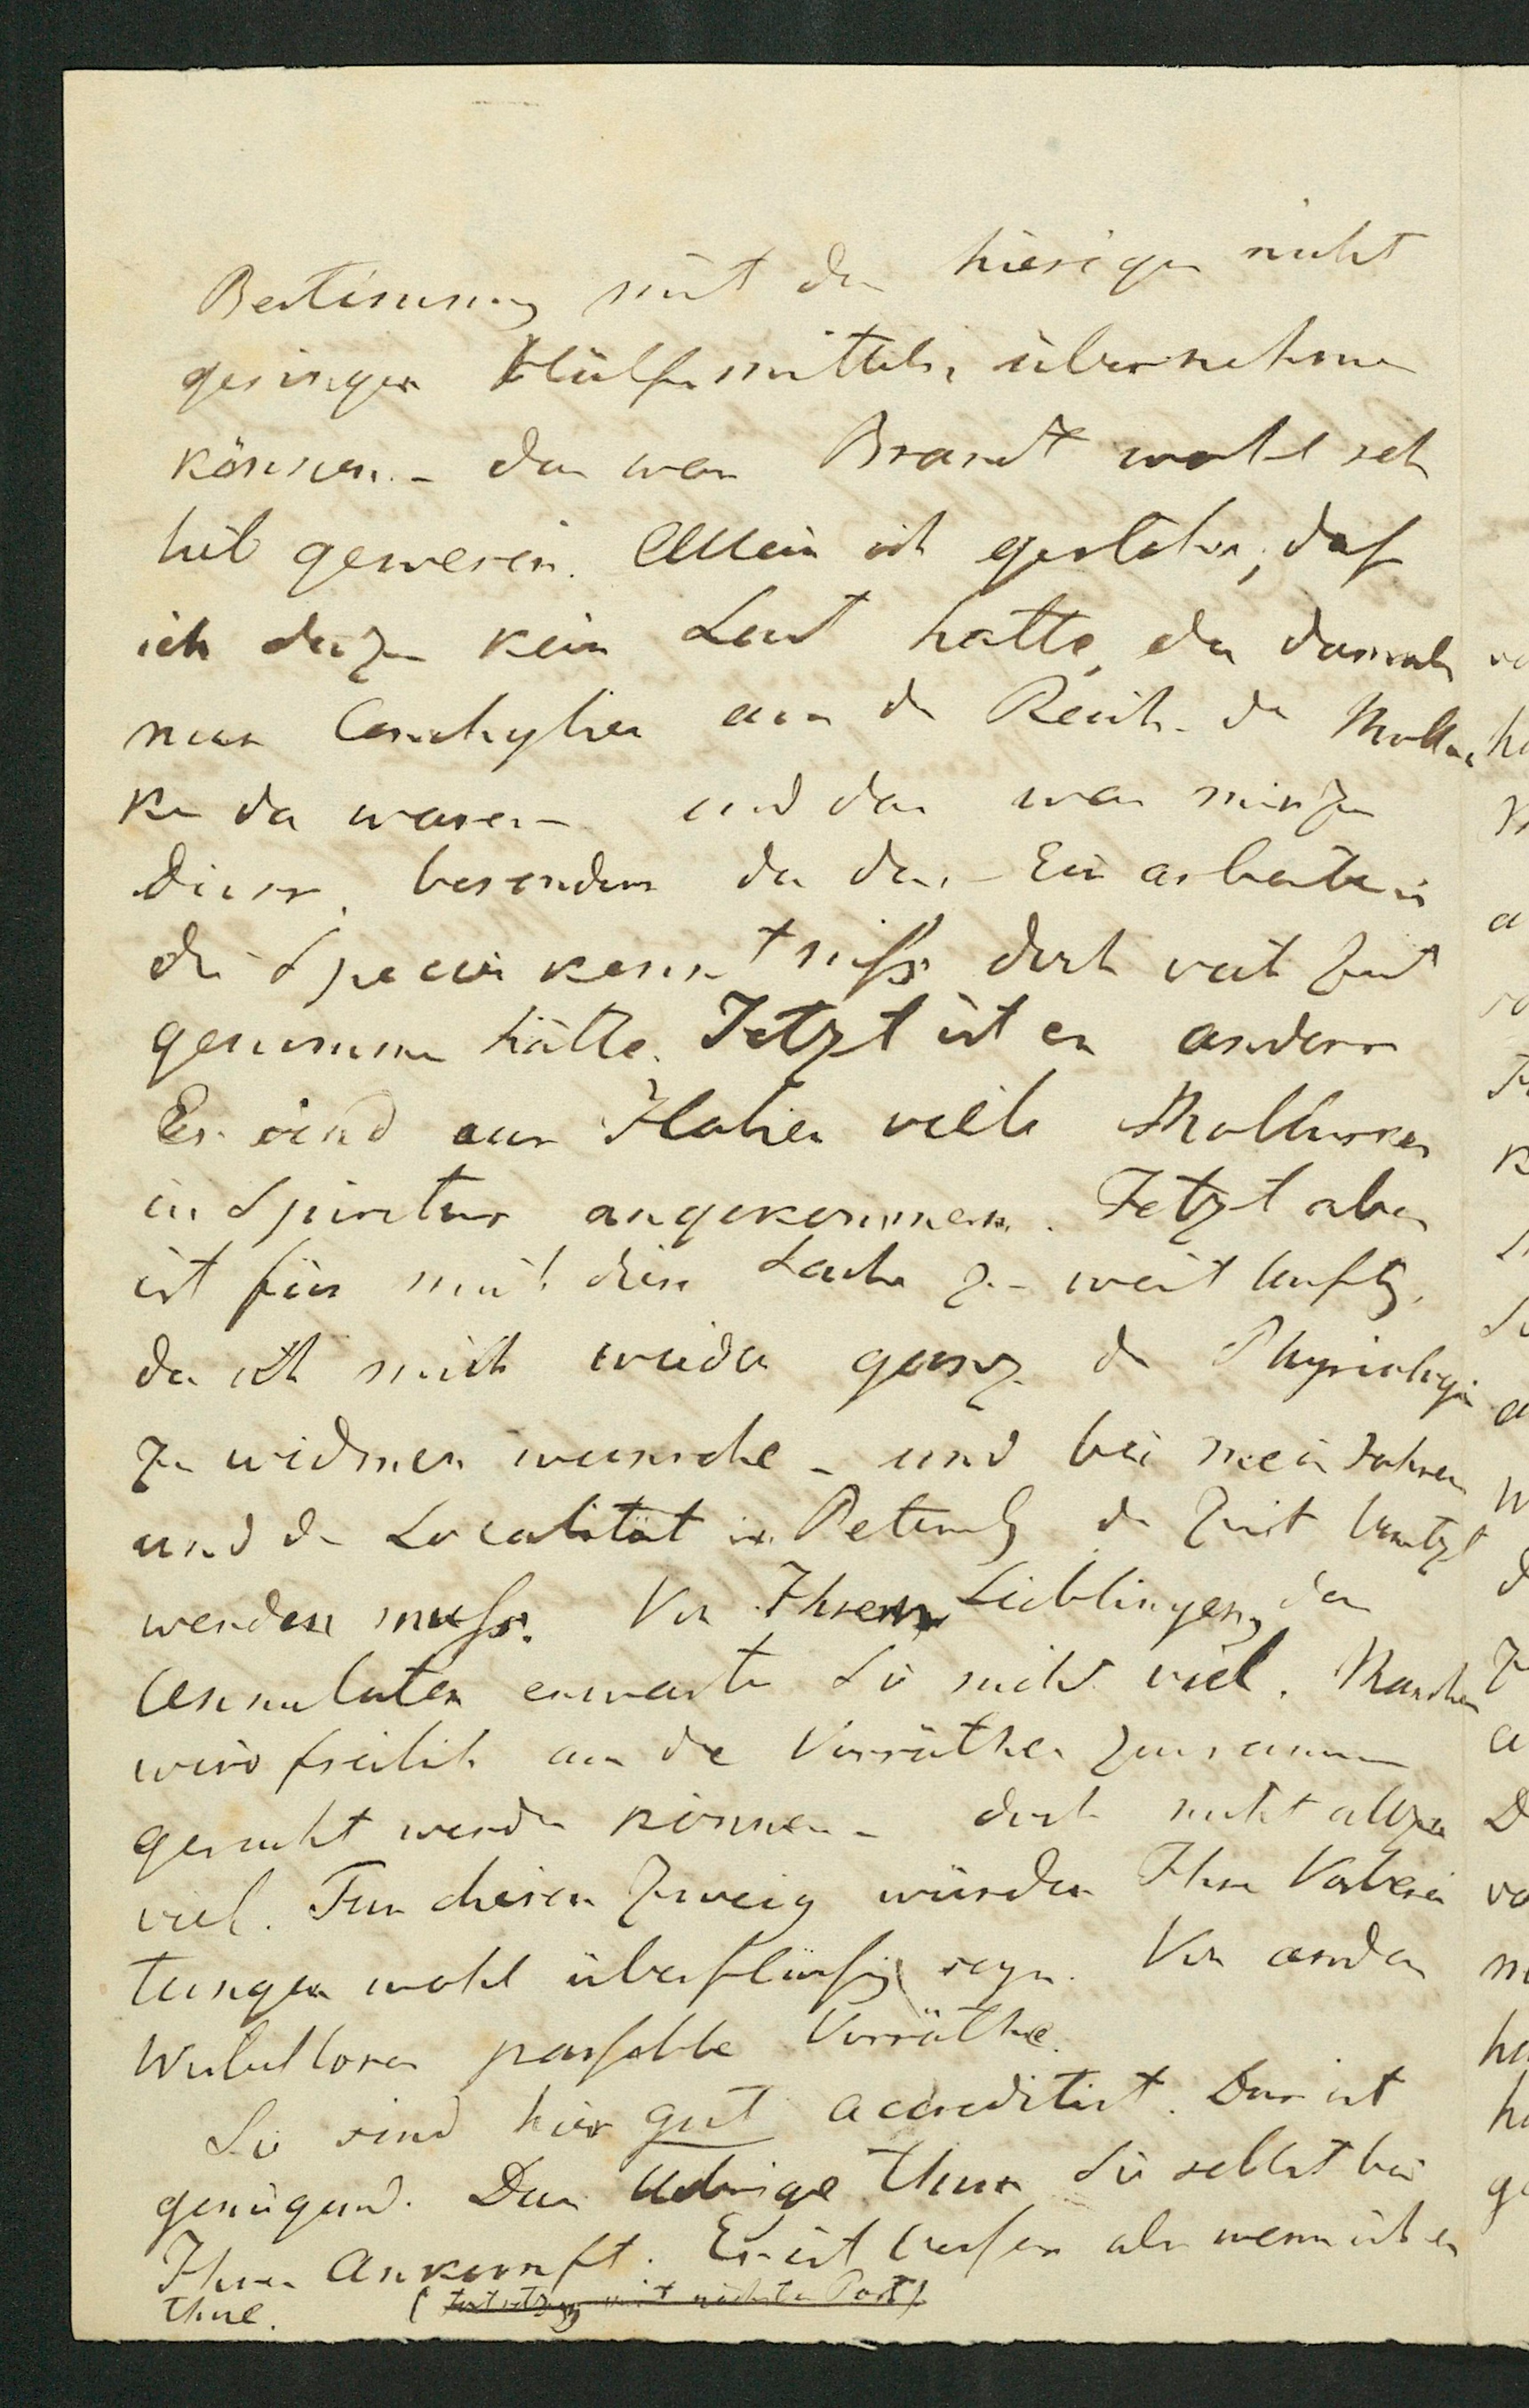 Bestimmung mit den hiesigen nicht
geringen Hülfsmitteln übernehmen
können. - das war Brandt wohl sehr
lieb gewesen. Allein ich gestehe, daß
ich dazu kein Lust hatte, da damals
nur Conchylien aus der Reihe der Mollus
ken da waren und das war mir zu
dürr, besonders da das Einarbeiten in
die Specieskenntniß doch viel Zeit
genommen hätte. Jetzt ist es anders
Es sind aus Italien viele Mollusken
in Spiritus angekommen. Jetzt aber
ist für mich diese Sache zu weitläuftig,
da ich mich wieder ganz der Physiologie
zu widmen wünsche - und bei mein Jahren
und der Localität in Petersburg die Zeit benutzt
werden muß. Von Ihren Lieblingen, den
Annulaten erwarten Sie nicht viel. Manches
wird freilich aus den Vorräthen zusammen
gesucht werden können - doch nicht allzu
viel. Für diesen Zweig würden Ihre Vorberei
tungen wohl überflüßig seyn. Von andern
Wirbellosen passable Vorräthe.
Sie sind hier gut accreditirt. Das ist
genügend. Das Uebrige thun Sie selbst bei
Ihrer Ankunft. Es ist besser als wenn ich es
thue. (Fortsetzung mit nächster Post)